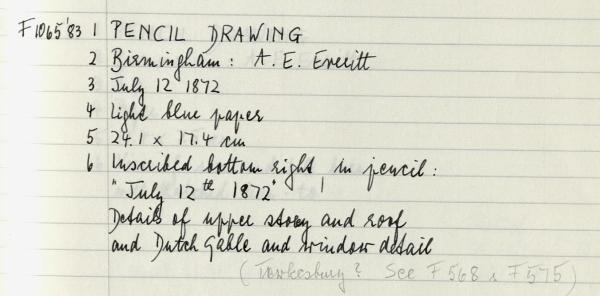 F1065'83 1 PENCIL DRAWING
2 Birmingham: A. E. Everitt
3 July 12 1872
4 Light blue paper
5 24.1 x 17.4 cm
6 Inscribed bottom right, in pencil:
"July 12th 1872"
Details of upper storey and roof
and Dutch Gable and window detail
(Tewkesbury? See F568 & F575)